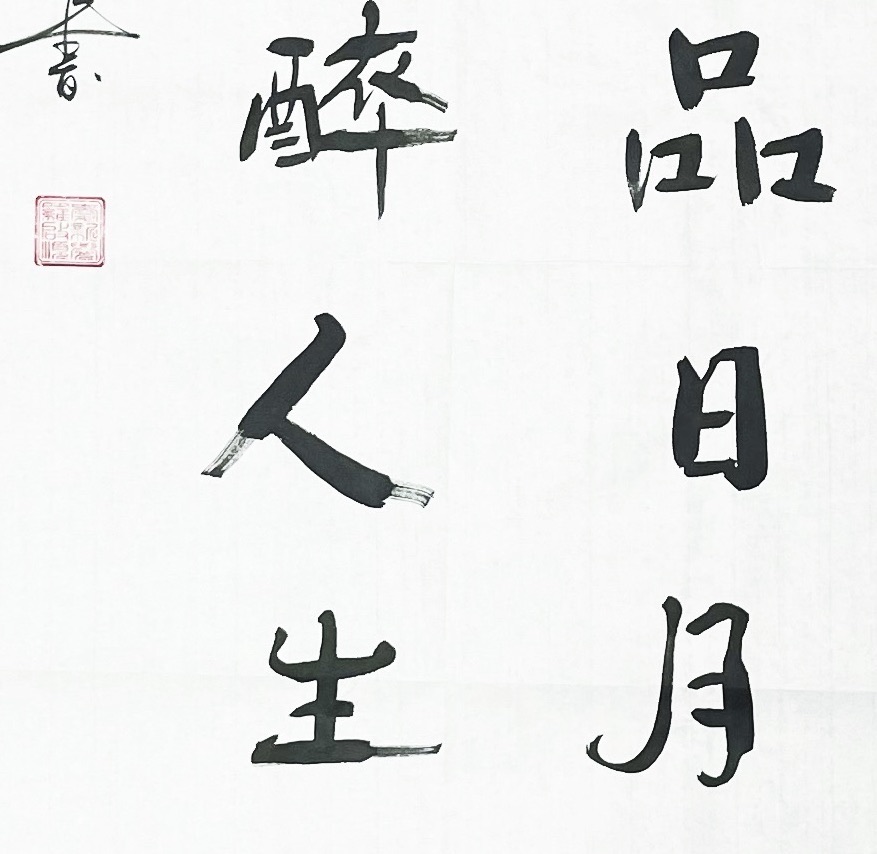 品日月
醉人生
书